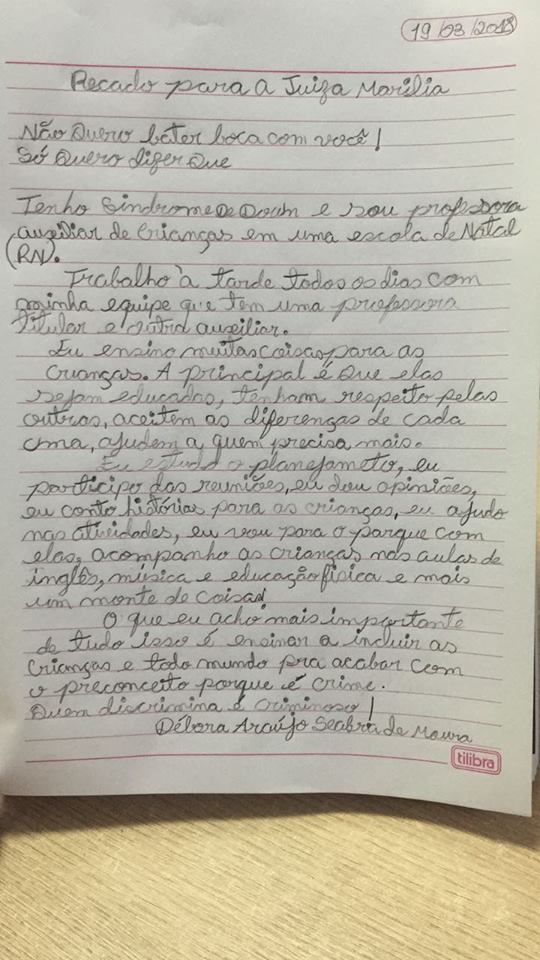 19/03/2018
Recado para a Juiza Marilia
Não Quero bater boca com você!
Só Quero dizer Que
Tenho Sindrome De Down e sou professora
auxiliar de Crianças em uma escola de Natal
(RN).
Trabalho à tarde todos os dias com
minha equipe que tem uma professora
titular e outra auxiliar.
Eu ensino muitas coisas para as
Crianças. A principal é Que elas
sejam educadas, tenham respeito pelas
outras, aceitem as diferenças de cada
uma, ajudem a quem precisa mais.
Eu estudo o planejameto, eu
participo das reuniões, eu dou opiniões,
eu conto histórias para as crianças, eu ajudo
nas atividades, eu vou para o parque com
elas, acompanho as crianças nas aulas de
inglês, música e educação física e mais
um monte de coisas!
O que eu acho mais importante
de tudo isso é ensinar a incluir as
crianças e todo mundo pra acabar com
o preconceito porque é crime.
Quem discrimina é criminoso!
Débora Araújo Seabra de Moura
tilibra